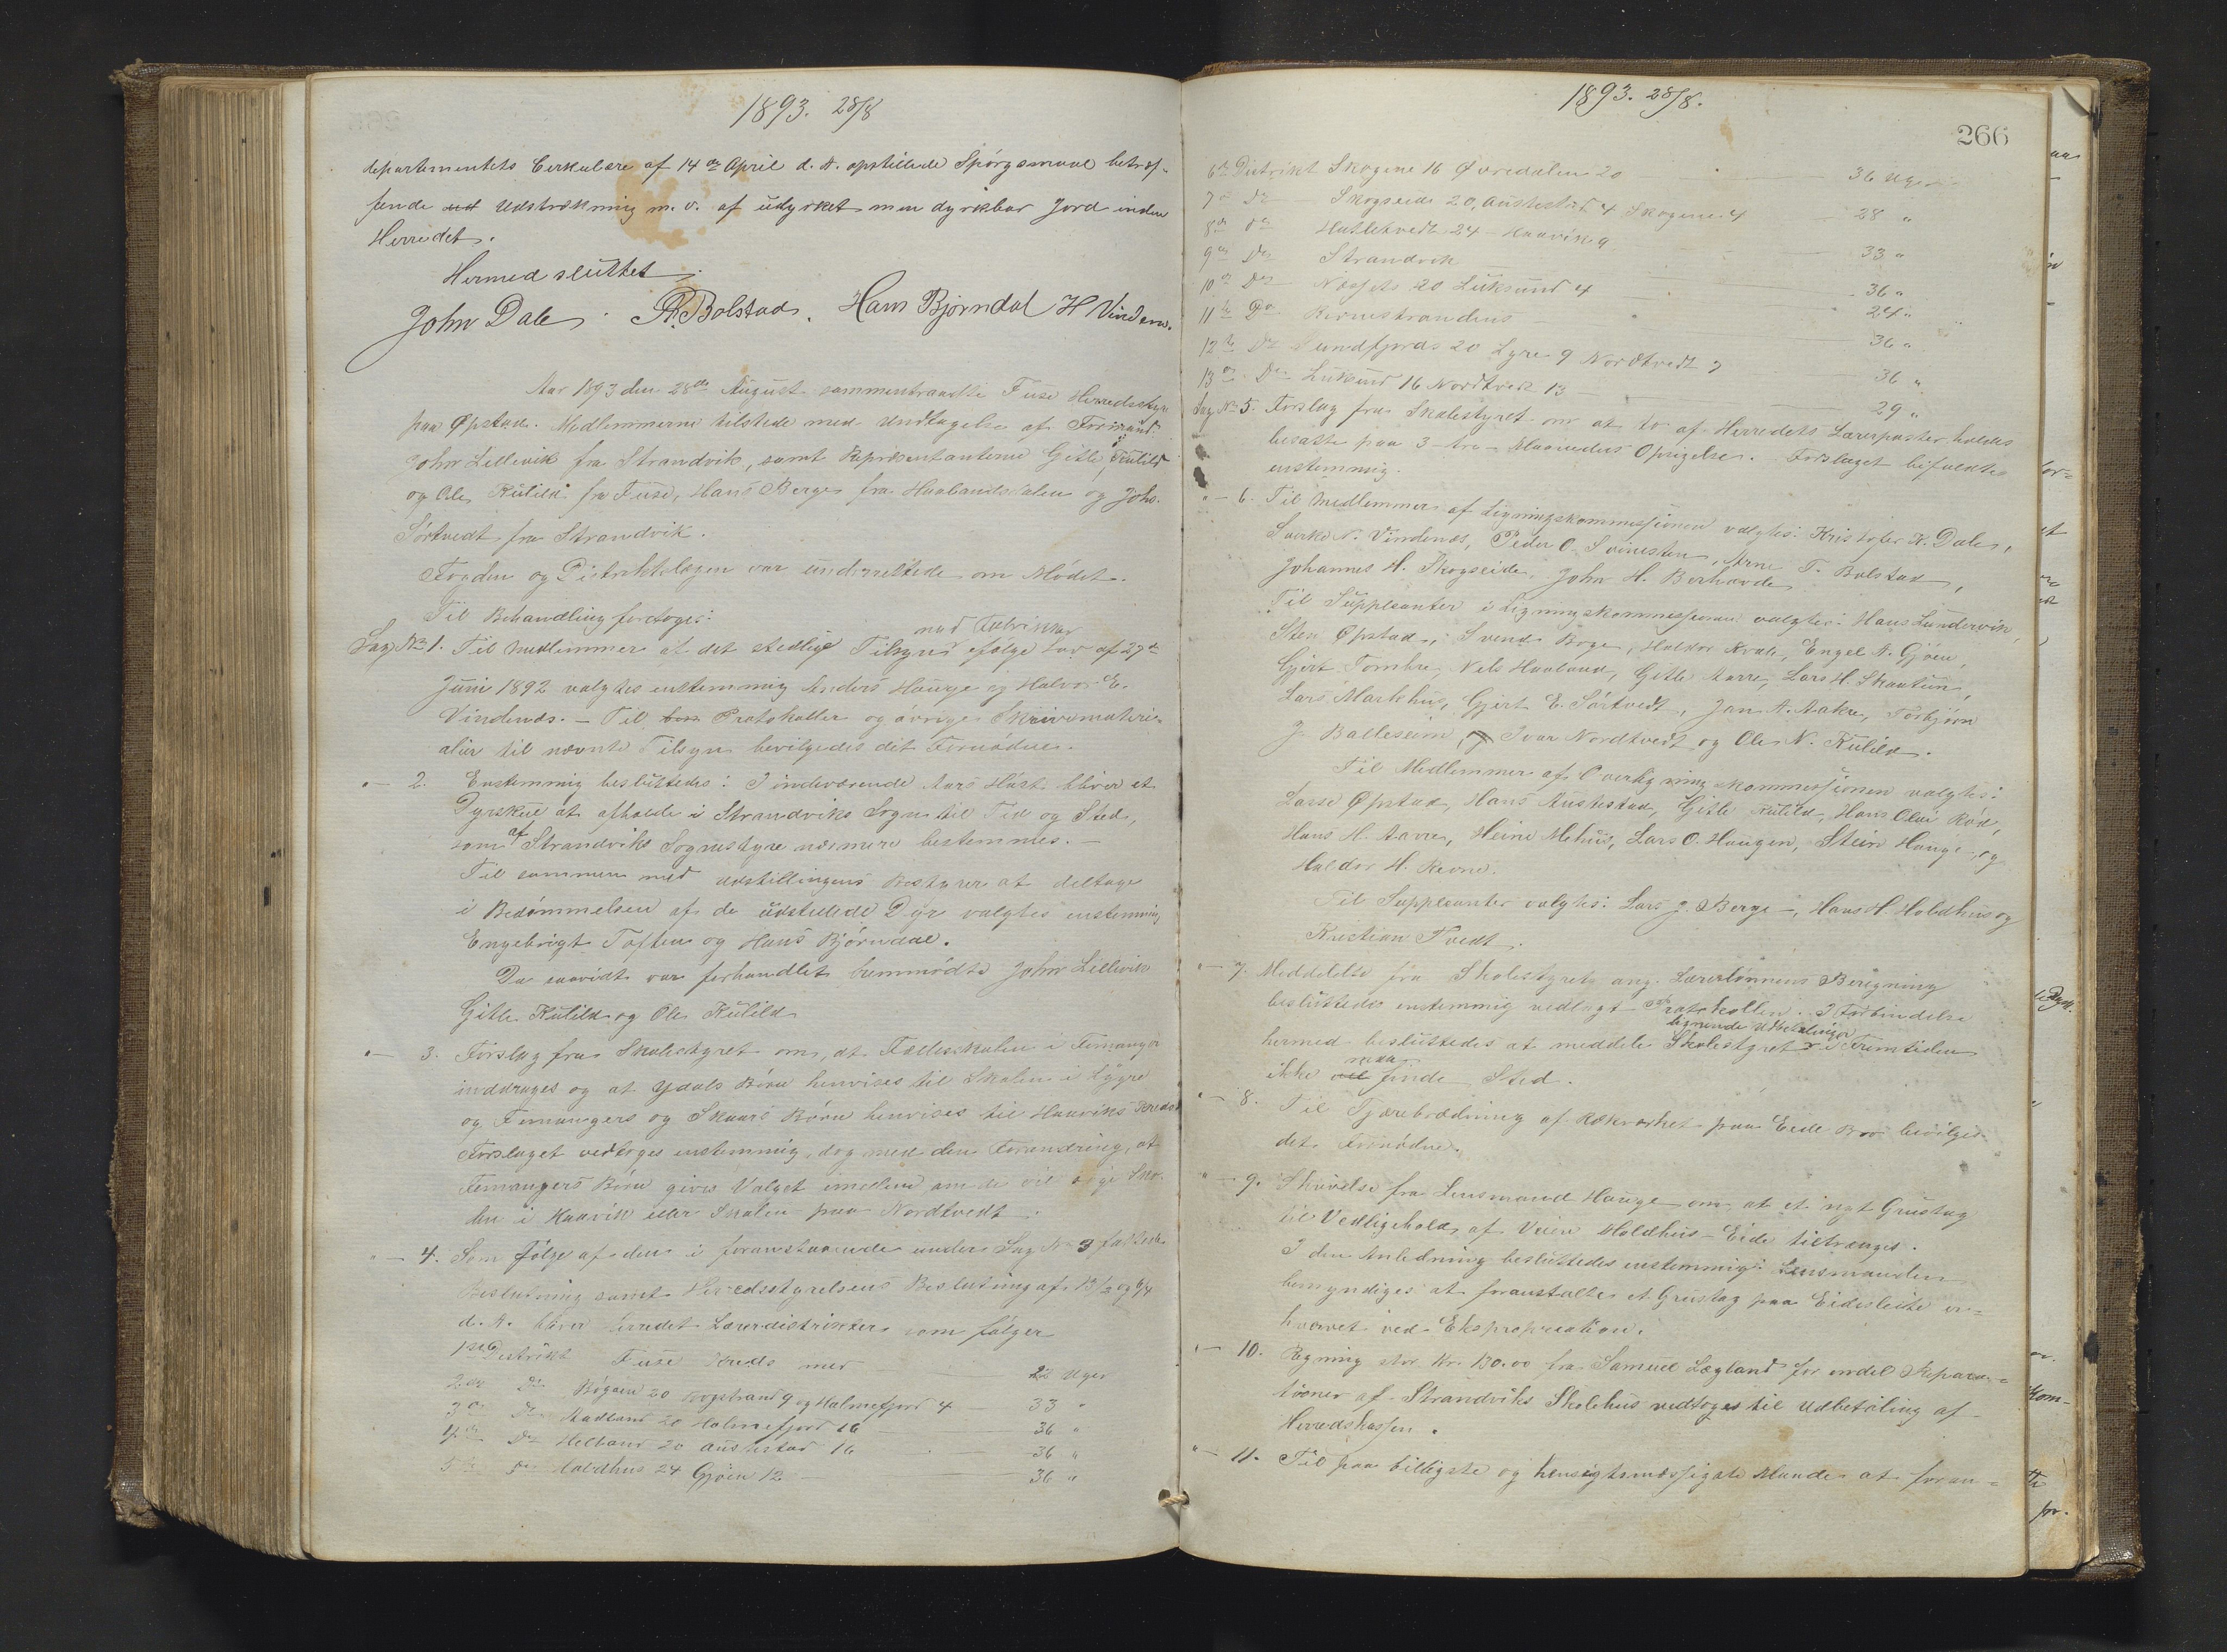 1893. 28/8
departementets Cirkulære af 14de April d. A. opstillede Spørgsmaal betræf-
fende Udstrækning m. v. af udyrket men dyrkbar Jord inden
Herredet.
Hermed sluttet.
John Dale. A. Bolstad. Hans Bjørndal H Vindenes.
Aar 1893 den 28de August sammentraadte Fuse Herredsstyre
paa Øpstad. Medlemmerne tilstede med Undtagelse af Formand
John Lillevik fra Strandvik, samt Repræsentanterne Gitle Kulild
og Ole Kulild fra Fuse, Hans Berge fra Haalandsdalen og Johs.
Sørtvedt fra Strandvik.
Fogden og Distriktslægen var underrettede om Mødet.
Til Behandling foretoges:
Sag No 1. Til Medlemmer af det stedlige Tilsyn med Fabrikker ifølge Lov af 27de
Juni 1892 valgtes enstemmig Anders Hauge og Halvor E.
Vindenes. – Til Protokoller og øvrige Skrivemateri-
alier til nævnte Tilsyn bevilgedes det Fornødne.
" – 2. Enstemmig besluttedes: I indeværende Aars Høst bliver et
Dyrskue at afholde i Strandviks Sogn til Tid og Sted,
som af Strandviks Sognestyre nærmere bestemmes. –
Til sammen med Udstillingens Bestyrer at deltage
i Bedømmelsen af de udstillede Dyr valgtes enstemmig
Engebrigt Toften og Hans Bjørndal.
Da saavidt var forhandlet fremmødte John Lillevik
Gitle Kulild og Ole Kulild
" – 3. Forslag fra Skolestyret om, at Fællesskolen i Femanger
inddrages og at Ydals Børn henvises til Skolen i Lygre
og Femangers og Skaars Børn henvises til Haaviks Kreds
Forslaget vedtoges enstemmig, dog med den Forandring, at
Femangers Børn gives Valget imellem om de vil søge Sko-
len i Haavik eller Skolen paa Nordtvedt.
" – 4. Som Følge af den i foranstaaende under Sag No 3 fattede
Beslutning samt Herredsstyrelsens Beslutning af 13/2 og 6/4
d. A. bliver Herredets Lærerdistrikter som følger
1ste Distrikt Fuse Kreds med 22 Uger
2det Do Bøgaen 20 9 og Holmefjord 4 33 "
3de Do Radland 20 Holmefjord 16 36 "
4de Do Helland 20 Austestad 16 36 "
5te Do Holdhus 24 Gjøen 12 36 "
1893. 28/8.
266
6te Distrikt Skogene 16 Øvredalen 20 36 Uger
7de Do Skogseide 20, Austestad 4 Skogene 4 28 "
8de Do Hatletvedt 24 – Haavik 9 33 "
9de Do Strandvik 36 "
10de Do 20 Luksund 4 24 "
11te Do Revnestrandens 36 "
12te Do Sundfjords 20 Lyre 9 Nordtvedt 7 36 "
13de Do Luksund 16 Nordtvedt 13 29 "
Sag No 5. Forslag fra Skolestyret om at to af Herredets Lærerposter holdes
besatte paa 3 – tre – Maaneders Opsigelse. Forslaget bifaldtes
enstemmig.
" – 6. Til Medlemmer af Ligningskommissionen valgtes: Kristofer K. Dale,
Sverke N. Vindenes, Peder O. Svinesten, Arne T. Bolstad,
Johannes H. Skogseide, John H. Berhovde
Til Suppleanter i Ligningskommissionen valgtes: Hans Lundervik,
Sten Øpstad, Svend Boge, Haldor Kvale, Engel N. Gjøen,
Gjert Tombre, Nils Haaland, Gitle Aarre, Lars H. Skaatun,
Lars Markhus, Gjert E. Sørtvedt, Jan A. Aakre, Torbjørn
J. Balleseim, Ivar Nordtvedt og Ole N. Kulild.
Til Medlemmer af Overligningskommissionen valgtes:
Lasse Øpstad, Hans Austestad, Gitle Kulild, Hans Olai Rød,
Hans H. Aarre, Heine Mehus, Lars O. Haugen, Stein Hauge og
Haldor H. Revne.
Til Suppleanter valgtes: Lars J. Berge, Hans H. Holdhus og
Kristian Tvedt.
" – 7. Meddelelse fra Skolestyret ang. Lærerlønnens Beregning
besluttedes enstemmig vedlagt Protokollen. I Forbindelse
hermed besluttedes at meddele Skolestyret at lignende Udbetalinger i Fremtiden
ikke maa finde Sted.
" – 8. Til Tjærebrædning af Rækværket paa Eide Bro bevilges
det Fornødne.
" – 9. Skrivelse fra Lensmand Hauge om at et nyt Grustag
til Vedligehold af Veien Holdhus – Eide tiltrænges.
I den Anledning besluttedes enstemmig: Lensmanden
bemyndiges at foranstalte et Grustag paa Eidesleite er-
hvervet ved Ekspropriation.
" – 10. Regning stor Kr. 130.00 fra Samuel Lægland for endel Repara-
tioner af Strandviks Skolehus vedtoges til Udbetaling af
Herredskassen.
" – 11. Til paa billigste og hensigtsmæssigste Maade at foran-